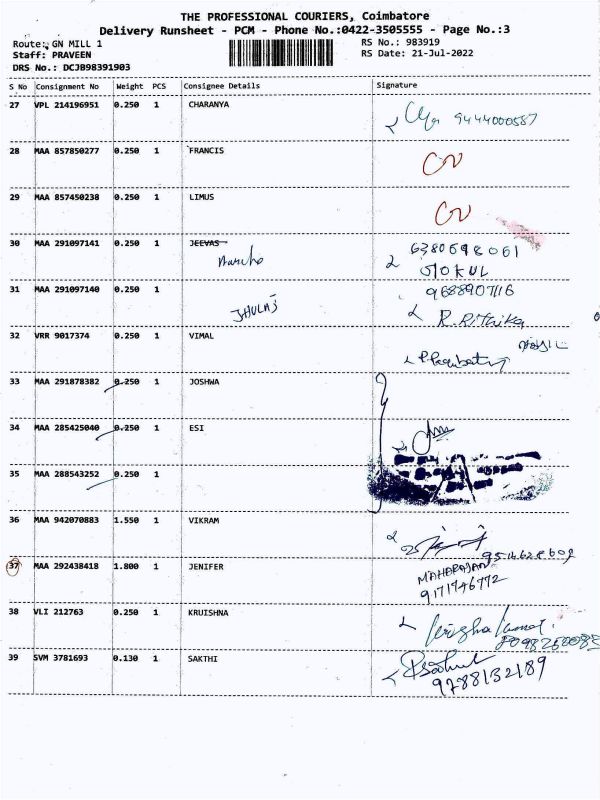 THE PROFESSIONAL COURIERS, Coimbatore
Delivery Runsheet - PCM - Phone No.:0422-3505555 - Page No.:3
Route: GN MILL 1 RS No.: 983919
Staff: PRAVEEN RS Date: 21-Jul-2022
DRS No.: DCJB98391903
S No Consignment No Weight PCS Consignee Details Signature
27 VPL 214196951 0.250 1 CHARANYA
9444000587
28 MAA 857850277 0.250 1 FRANCIS
29 MAA 857450238 0.250 1 LIMUS
30 MAA 291097141 0.250 1 JEEVAS
GOKUL
31 MAA 291097140 0.250 1 9688907116
JHULAS R.Rithika
32 VRR 9017374 0.250 1 VIMAL
33 MAA 291878382 0.250 1 JOSHWA
34 MAA 285425040 0.250 1 ESI
35 MAA 288543252 0.250 1
36 MAA 942070883 1.550 1 VIKRAM
37 MAA 292438418 1.800 1 JENIFER
MAHARAJAN
9171746772
38 VLI 212763 0.250 1 KRUISHNA
39 SVM 3781693 0.130 1 SAKTHI
9788132189